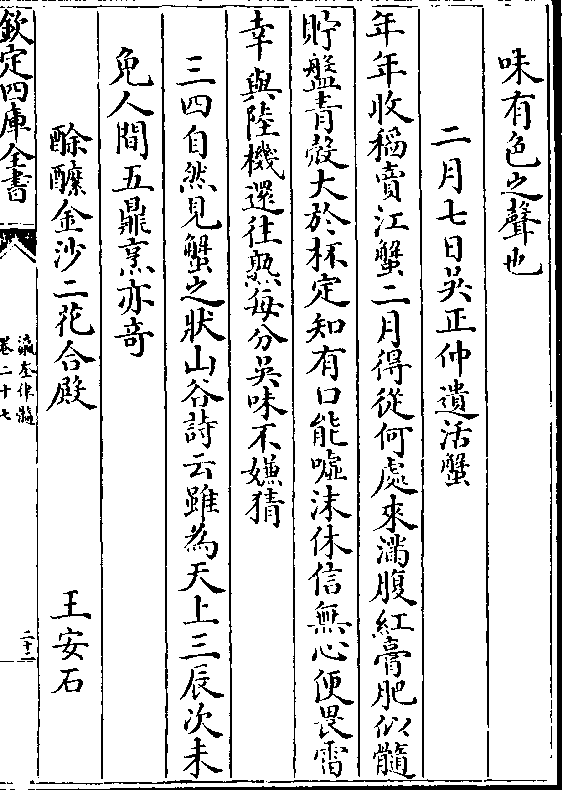 味有色之聲也
二月七日吳正仲遺活蟹
年年收稻賣江蟹二月得從何處來滿腹紅膏肥似髓
貯盤青殼大於杯定知有口能噓沫休信無心便畏雷
幸與陸機還往熟每分吳味不嫌猜
三四自然見蟹之狀山谷詩云雖為天上三辰次未
免人間五鼎烹亦奇
酴醿金沙二花合殿 王安石
欽定四庫全書
瀛奎律髓
卷二十七
二十二